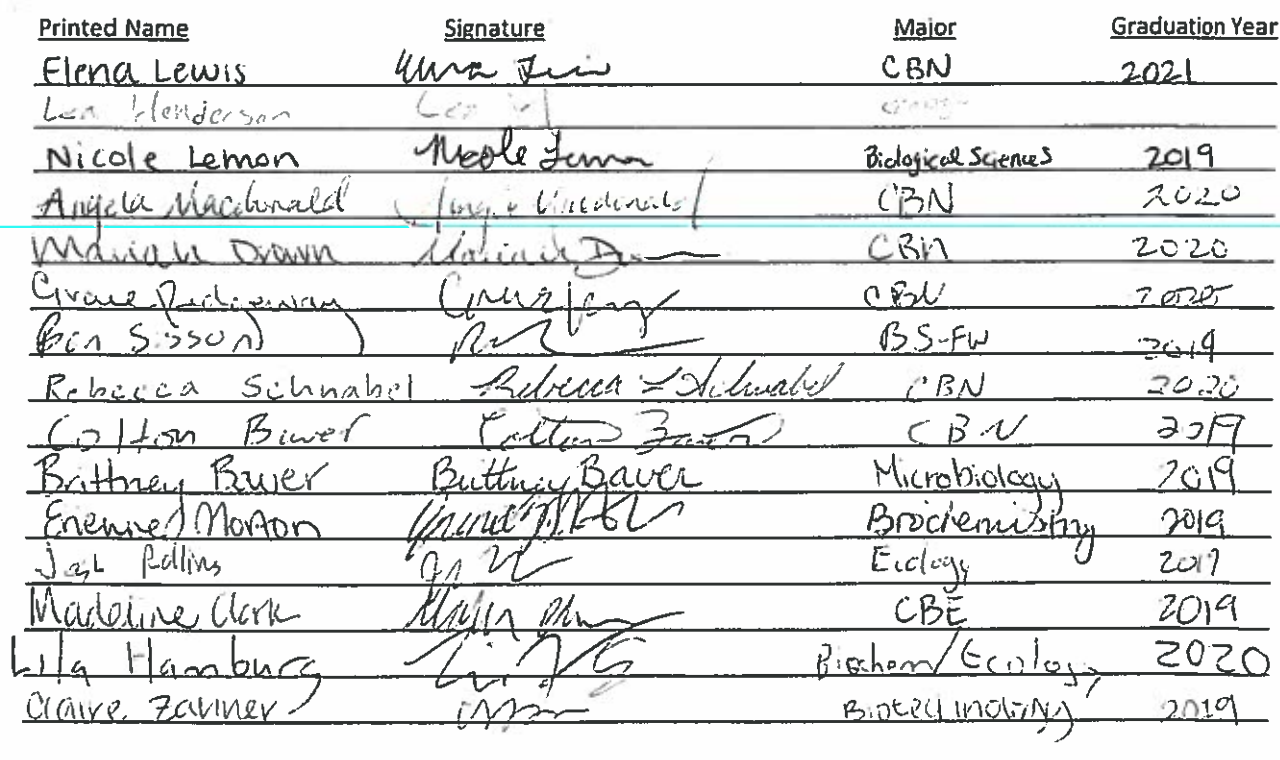 Printed Name Signature Major Graduation Year
Elena Lewis CBN 2021
Henderson
Nicole Lemon Nicole Lemon Biological Sciences 2019
Angela Macdonald Macdonald CBN 2020
Mariah Drown Mariah CBN 2020
Grace Ridgeway CBN 2020
Ben Sisson BS-FW 2019
Rebecca Schnabel Rebecca L Schnabel CBN 2020
Colton Colton CBN 2019
Brittney Bauer Brittney Bauer Microbiology 2019
Morton Biochemistry 2019
Josh Rollins Ecology
Madeline Clark CBE 2019
Lila Hamburg Biochem/Ecology 2020
Claire Zariner Biotechnology 2019